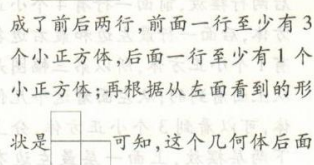 成了前后两行，前面一行至少有 3
个小正方体，后面一行至少有 1 个
小正方体；再根据从左面看到的形
状是 可知，这个几何体后面